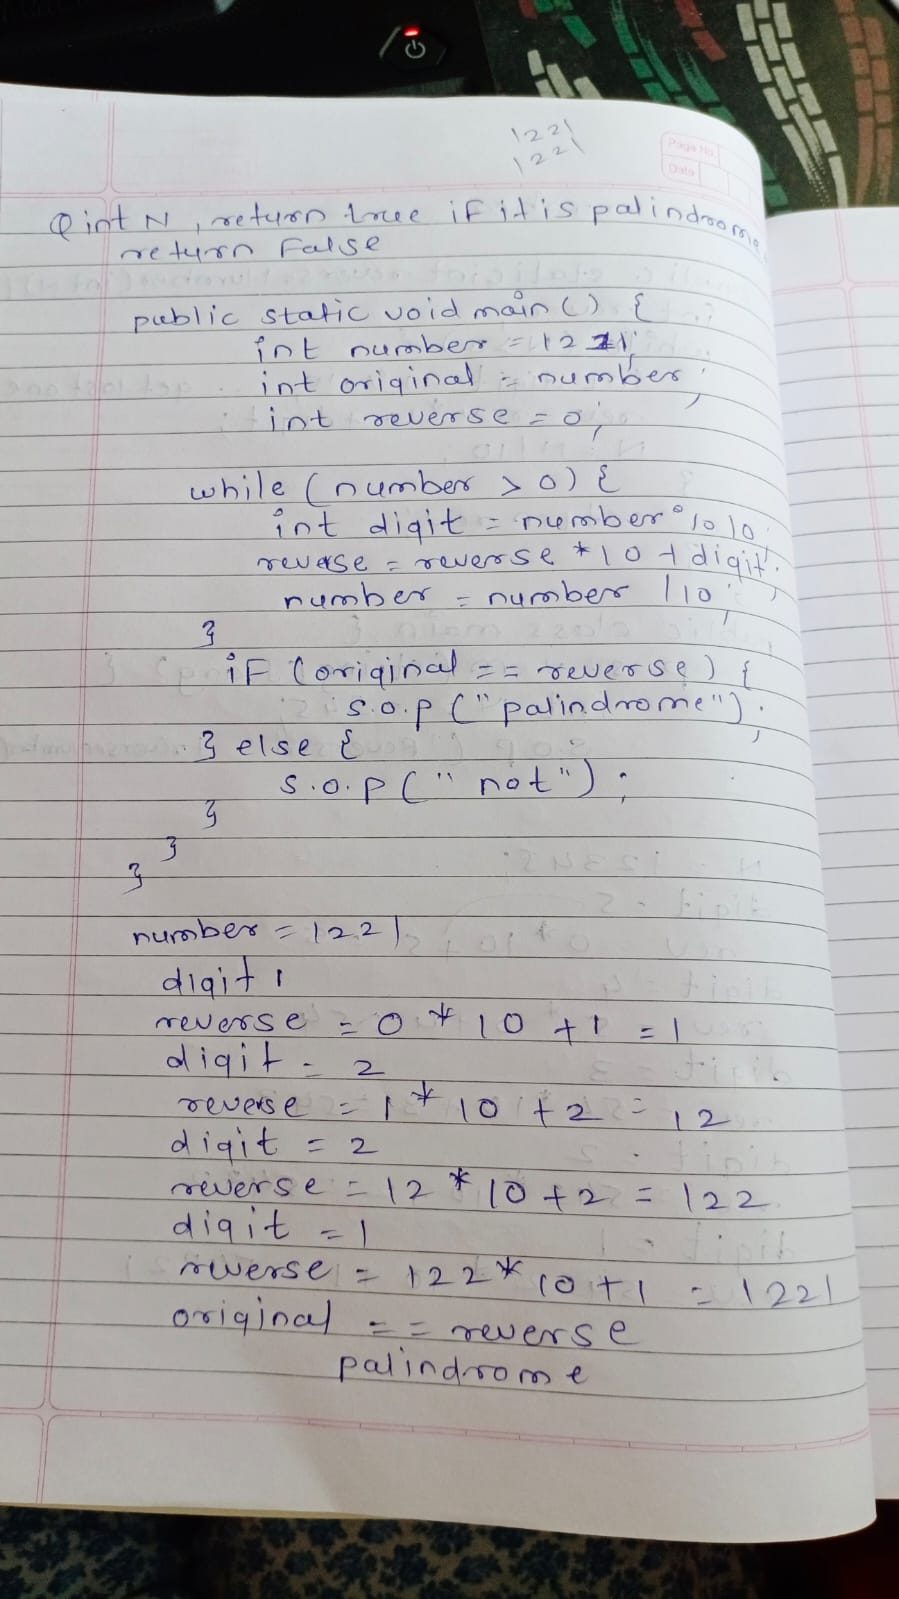 1221
1221
Page No.
Date
Q int N , return true if it is palindrome,
return False
public static void main () {
int number = 1221;
int original = number;
int reverse = 0;
while (number > 0) {
int digit = number % 10;
reverse = reverse * 10 + digit;
number = number / 10;
}
iF (original == reverse) {
S.O.P ("palindrome");
} else {
S.O.P (" not");
}
}
}
number = 1221
digit 1
reverse = 0 * 10 + 1 = 1
digit = 2
reverse = 1 * 10 + 2 = 12
digit = 2
reverse = 12 * 10 + 2 = 122
digit = 1
reverse = 122 * 10 + 1 = 1221
original == reverse
palindrome